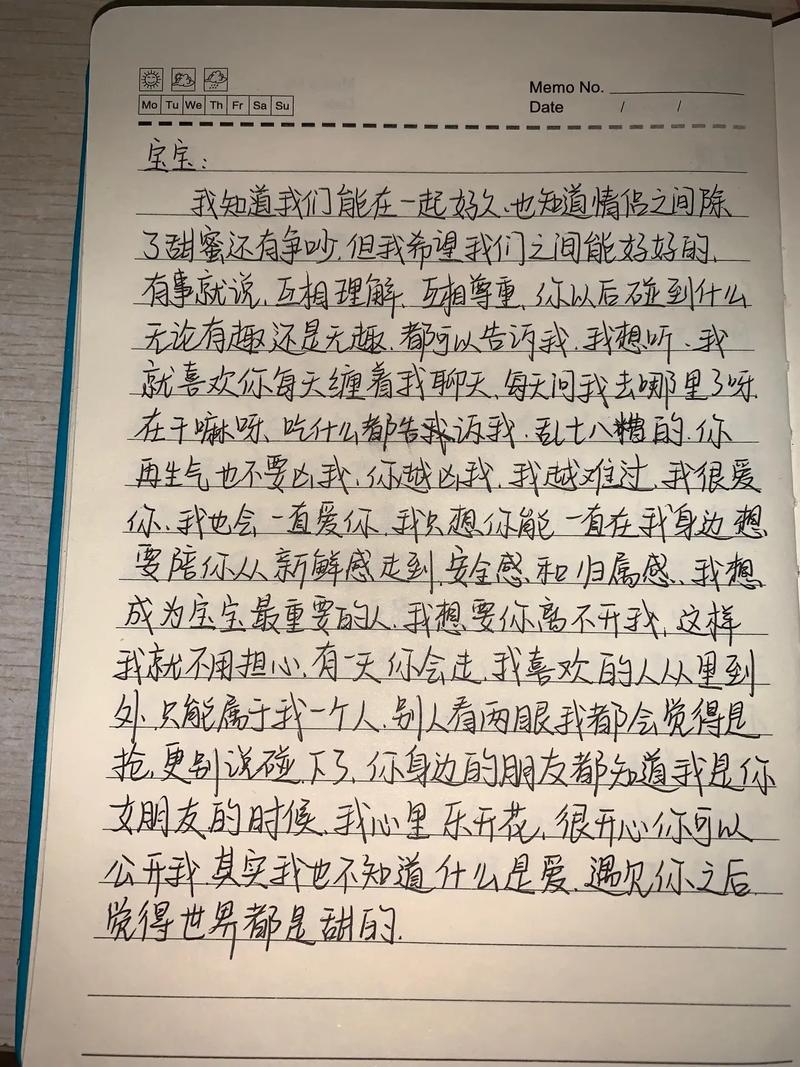 Memo No.
Mo Tu We Th Fr Sa Su
Date / /
宝宝:
我知道我们能在一起好久、也知道情侣之间除
了甜蜜还有争吵,但我希望我们之间能好好的、
有事就说、互相理解、互相尊重、你以后碰到什么
无论有趣还是无趣、都可以告诉我、我想听、我
就喜欢你每天缠着我聊天、每天问我去哪里了呀、
在干嘛呀、吃什么都告诉我、乱七八糟的、你
再生气也不要凶我、你越凶我、我越难过、我很爱
你、我也会一直爱你、我只想你能一直在我身边想
要陪你从新鲜感走到、安全感和归属感、我想
成为宝宝最重要的人、我想要你离不开我、这样
我就不用担心、有一天你会走、我喜欢的人从里到
外、只能属于我一个人、别人看两眼我都会觉得是
抢、更别说碰一下了、你身边的朋友都知道我是你
女朋友的时候、我心里乐开花、很开心你可以
公开我、其实我也不知道什么是爱、遇见你之后
觉得世界都是甜的.